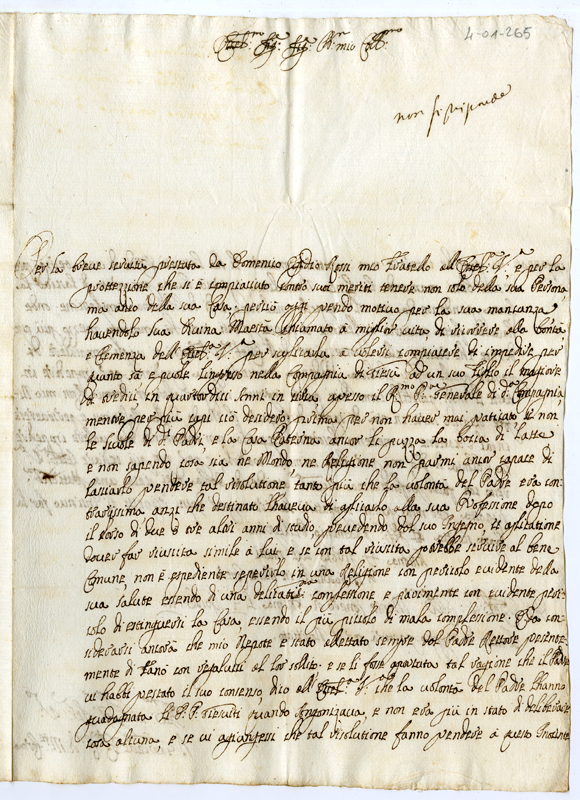 4-01-265
non si risponde
Per la breve servitù prestata da Domenico Rossi mio fratello all' e per la
prottezzione che si è compiaciuto senza suoi meriti tenere non solo della sua Persona
ma anco della sua Casa, per la sua mancanza
havendolo sua Divina Maestà chiamato à miglior vita, di ricorrere alla bontà
e clemenza dell' per suplicarla à volersi compiacere di impedire per
quanto sà e puole l'ingresso nella Compagnia di Giesù ad un suo figlio il maggiore
di tredici in quattordici Anni in circa apresso il Generale di Compagnia
mentre per più capi ciò desidero, prima per non haver mai praticato se non
le scuole di Padri, e la casa Paterna ancor li puzza la bocca di latte
e non sapendo cosa sia ne Mondo, ne Religione non parmi ancor capace di
lasciarlo prendere tal risolutione tanto più che la volontà del Padre era con-
trarissima anzi che destinati l'haveva di aplicarlo alla sua Professione dopo
il corso di due ò tre altri anni di studio, prevedendo dal suo Ingegno, et aplicatione
dover far riuscita simile à lui, e se con tal riuscita potrebbe servire al bene
Comune, non è espediente sepelirlo in una Religione con pericolo evidente della
sua salute essendo di una delicatissima complessione e parimente con evidente peri-
colo di estinguersi la Casa essendo il più piccolo di mala complessione. Da con-
siderarsi ancora che mio Nepote è stato allettato sempre dal Padre Rettore presente-
mente di Fano con regalucci al lor solito. e se li fosse apportata tal ragione che il Padre
vi habbi prestato il suo consenso, dico all' che la volontà del Padre l'hanno
guadagnata li P.P. Giesuiti quando Angonizava, e non era più in stato di deliberare
cosa alcuna, e se vi agiongessi che tal risolutione fanno prendere à questo Inocente